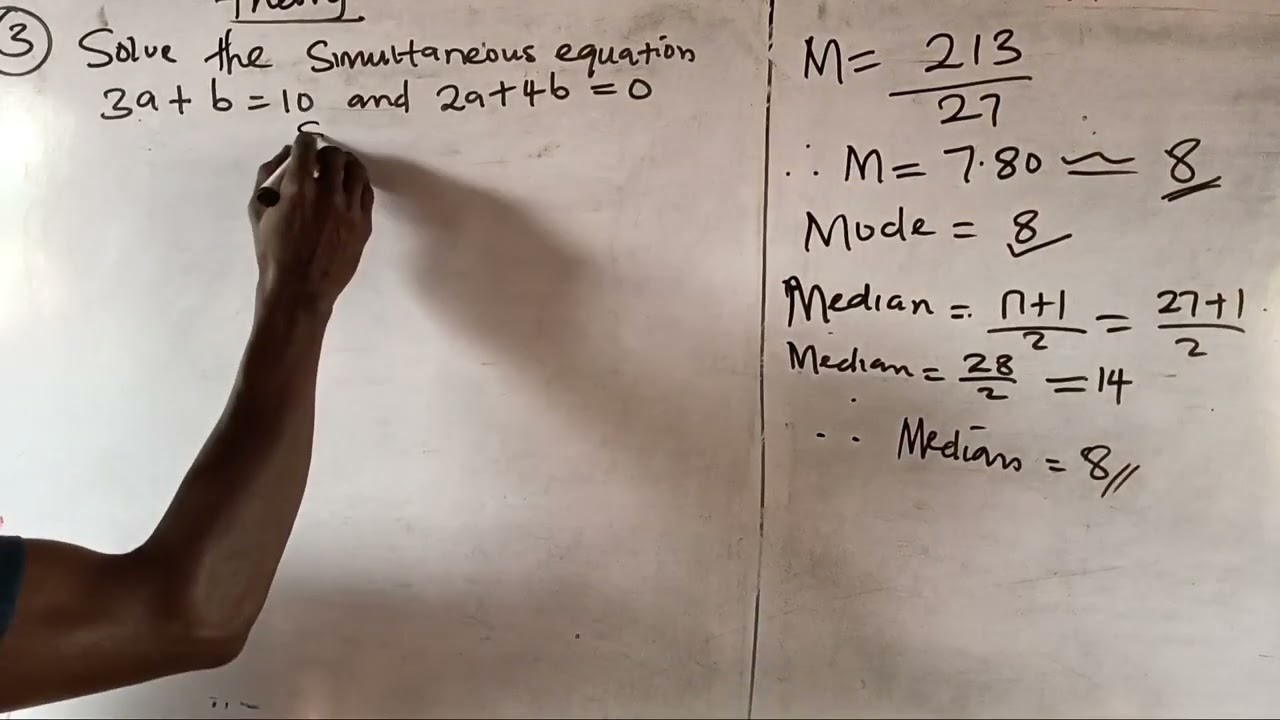 Theory
3 Solve the Simultaneous equation
3a + b = 10 and 2a+4b = 0
S
M = 213/27
∴ M = 7.80 ≃ 8
Mode = 8
Median = n+1/2 = 27+1/2
Median = 28/2 = 14
∴ Median = 8